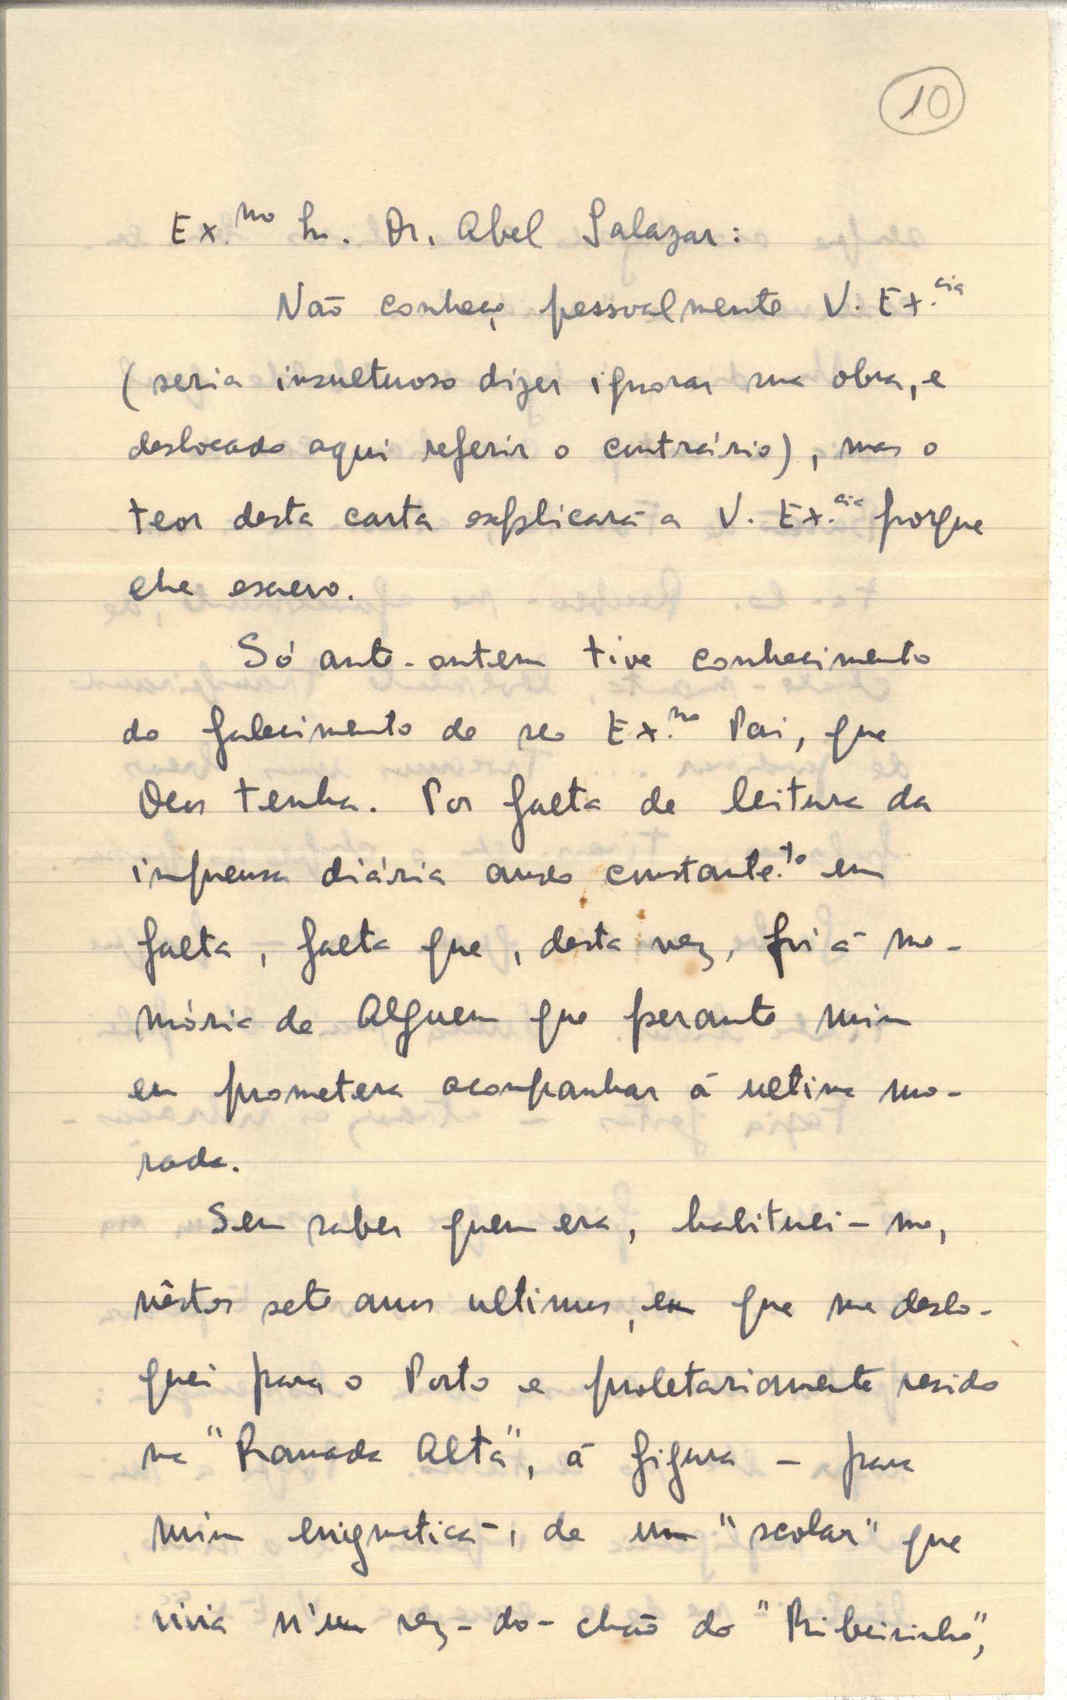 10
Ex.mo Sr. Dr. Abel Salazar:
Não conheço pessoalmente V. Ex.cia
(seria insultuoso dizer ignorar sua obra, e
deslocado aqui referir o contrário), mas o
teor desta carta explicará a V. Ex.cia porque
lhe escrevo.
Só ante-ontem tive conhecimento
do falecimento de seu Ex.mo Pai, que
Deus tenha. Por falta de leitura da
imprensa diária ando constante.te em
falta, falta que, desta vez, foi á me-
mória de Alguem que perante mim
eu prometera acompanhar á ultima mo-
rada.
Sem saber quem era, habituei-me,
nêstes sete anos ultimos, em que me deslo-
quei para o Porto e proletariamente resido
na "Ramada Alta", á figura - para
mim enigmatica -, de um "scolar" que
vivia n'um rez-do-chão do "Ribeirinho",